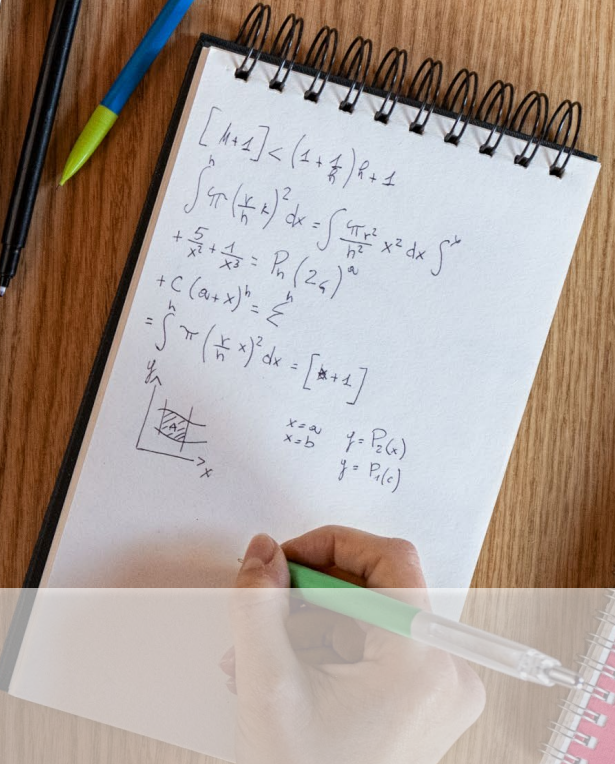 [n+1] < (1 + 1/n) h + 1
∫ʰ π (r/h x)² dx = ∫ πr²/h² x² dx ∫ˣ
+ 5/x² + 1/x³ = Pₕ (2ₐ)ᵃ
+ C (a+x)ʰ = Σʰ
= ∫ʰ π (r/h x)² dx = [x+1]
y
A
x
x = a
x = b
y = P₂(x)
y = P₁(c)